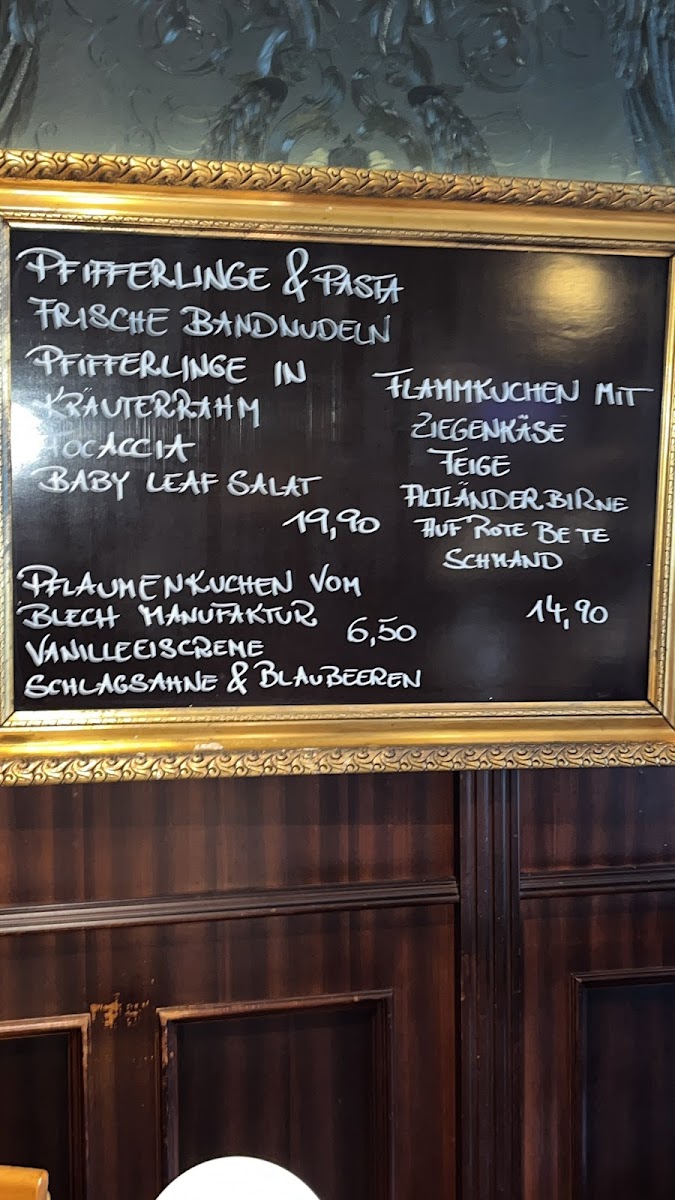 PFIFFERLINGE & PASTA
FRISCHE BANDNUDELN
PFIFFERLINGE IN
KRÄUTERRAHM
FOCACCIA
BABY LEAF SALAT
19,90
FLAMMKUCHEN MIT
ZIEGENKÄSE
FEIGE
ALTLÄNDER BIRNE
AUF ROTE BETE
SCHMAND
14,90
PFLAUMENKUCHEN VOM
BLECH MANUFAKTUR
VANILLEEISCREME
6,50
SCHLAGSAHNE & BLAUBEEREN